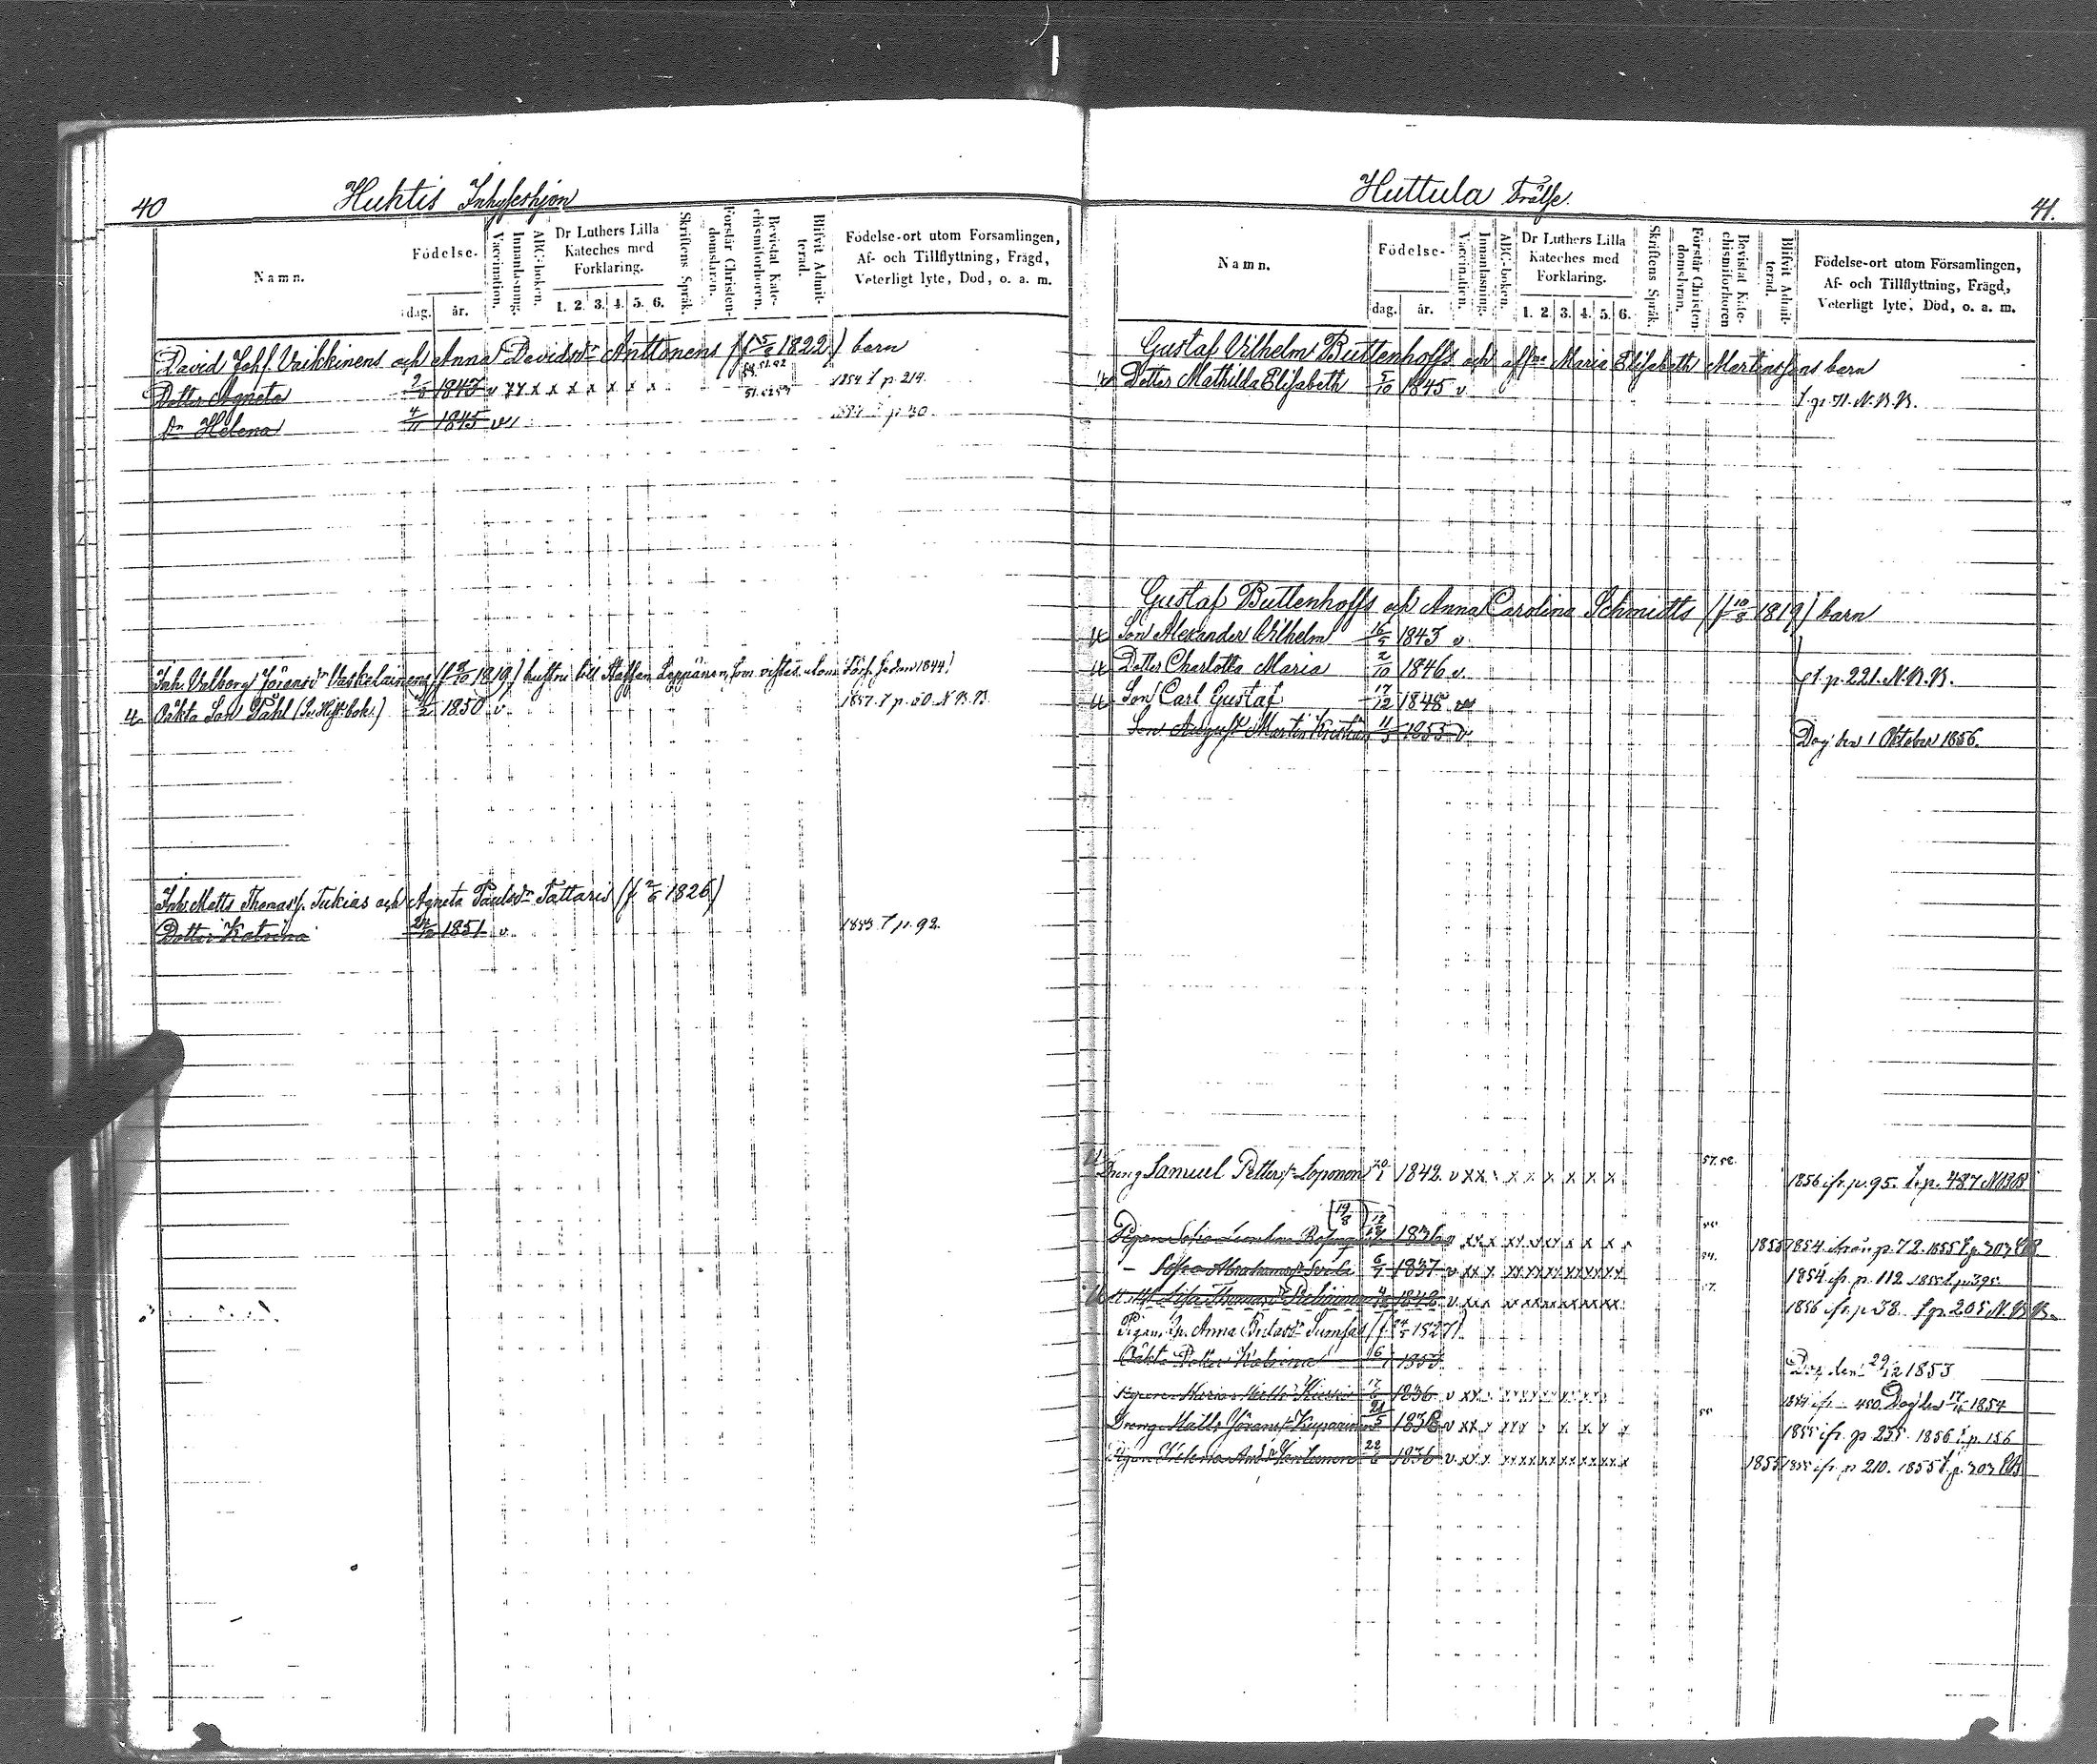 40
Huhtis Inhyseshjon
Namn.
Födelse.
dag. år.
Vaccination.
Innanläsning.
ABC-boken.
Dr Luthers Lilla Kateches med Förklaring.
1. 2. 3. 4. 5. 6.
Skriftens Språk.
Förstår Christendomsläran.
Bevistat Katechismiförhören.
Blifvit Admitterad.
Födelse-ort utom Församlingen,
Af- och Tillflyttning, Frägd,
Veterligt lyte, Död, o. a. m.
David Johs. Vaikkinens och Anna Davidsdr Anttonens (f 1822) barn
Dotter Agneta 1843 v x x x x x x x x 1854 f p. 214.
Dr Helena 4/11 1845 v
Inh. Valborg Göransdr Kaskelainens (f 1819) hustru till Staffan Leppänen, som vistas utom Förs. sedan 1844!
Oäkta Son Påhl 1850 v 1857. f p. 50 N.B.B.
Inh. Matts Thomass. Tukias och Agneta Paulsdr Tattaris (f 2/6 1826)
Dotter Katrina 1851 v 1853 f p. 92.
41.
Huttula Frälse.
Namn.
Födelse-
dag. år.
Vaccination.
Innanläsning.
ABC-boken.
Dr Luthers Lilla Kateches med Förklaring.
1. 2. 3. 4. 5. 6.
Skriftens Språk.
Förstår Christendomsläran.
Bevistat Katechismiförhören
Blifvit Admitterad.
Födelse-ort utom Församlingen,
Af- och Tillflyttning, Frägd,
Veterligt lyte, Död, o. a. m.
Gustaf Vilhelm Buttenhoffs och Maria Elisabeth Martinssons barn
Dotter Mathilda Elisabeth 5/10 1845 v f. p. 71. N.B.B.
Gustaf Buttenhoffs och Anna Carolina Schmidts (f 10/8 1819) barn
Son Alexander Vilhelm 16/5 1843 v
Dotter Charlotta Maria 2/10 1846 v f. p. 221. N.B.B.
Son Carl Gustaf 17/12 1848 v
Son August Martin Kristian 1855 v Dog den 1 Oktober 1856.
Dreng Samuel Petters. Loponen 20/1 1842 v x x x x x x x x 57. 58. 1856 ifr. p. 95. f. p. 487 N.B.B.
Pigan Sofia 1836 v 1855 1854 p. 72. 1855 f. p. 303
Sofia Abrahamsdr 1837 v 1854 ifr. p. 112 1855 f. p. 395
Lisa Thomasdr 1842 v 1856 ifr. p. 38. f. p. 205 N.B.B.
Pigan Anna 1827)
Oäkta Dotter Katrina 1853 Dog den 29/12 1853
Maria 17/6 1836 v 1854 ifr. 450. Dog den 1854
Dreng Matts Göranss. Kuparinen 21/5 1838 v 1855 ifr. p. 235. 1856 f. p. 156
Pigan Helena 22/6 1836 v 1855 1855 ifr. p. 210. 1855 f. p. 303